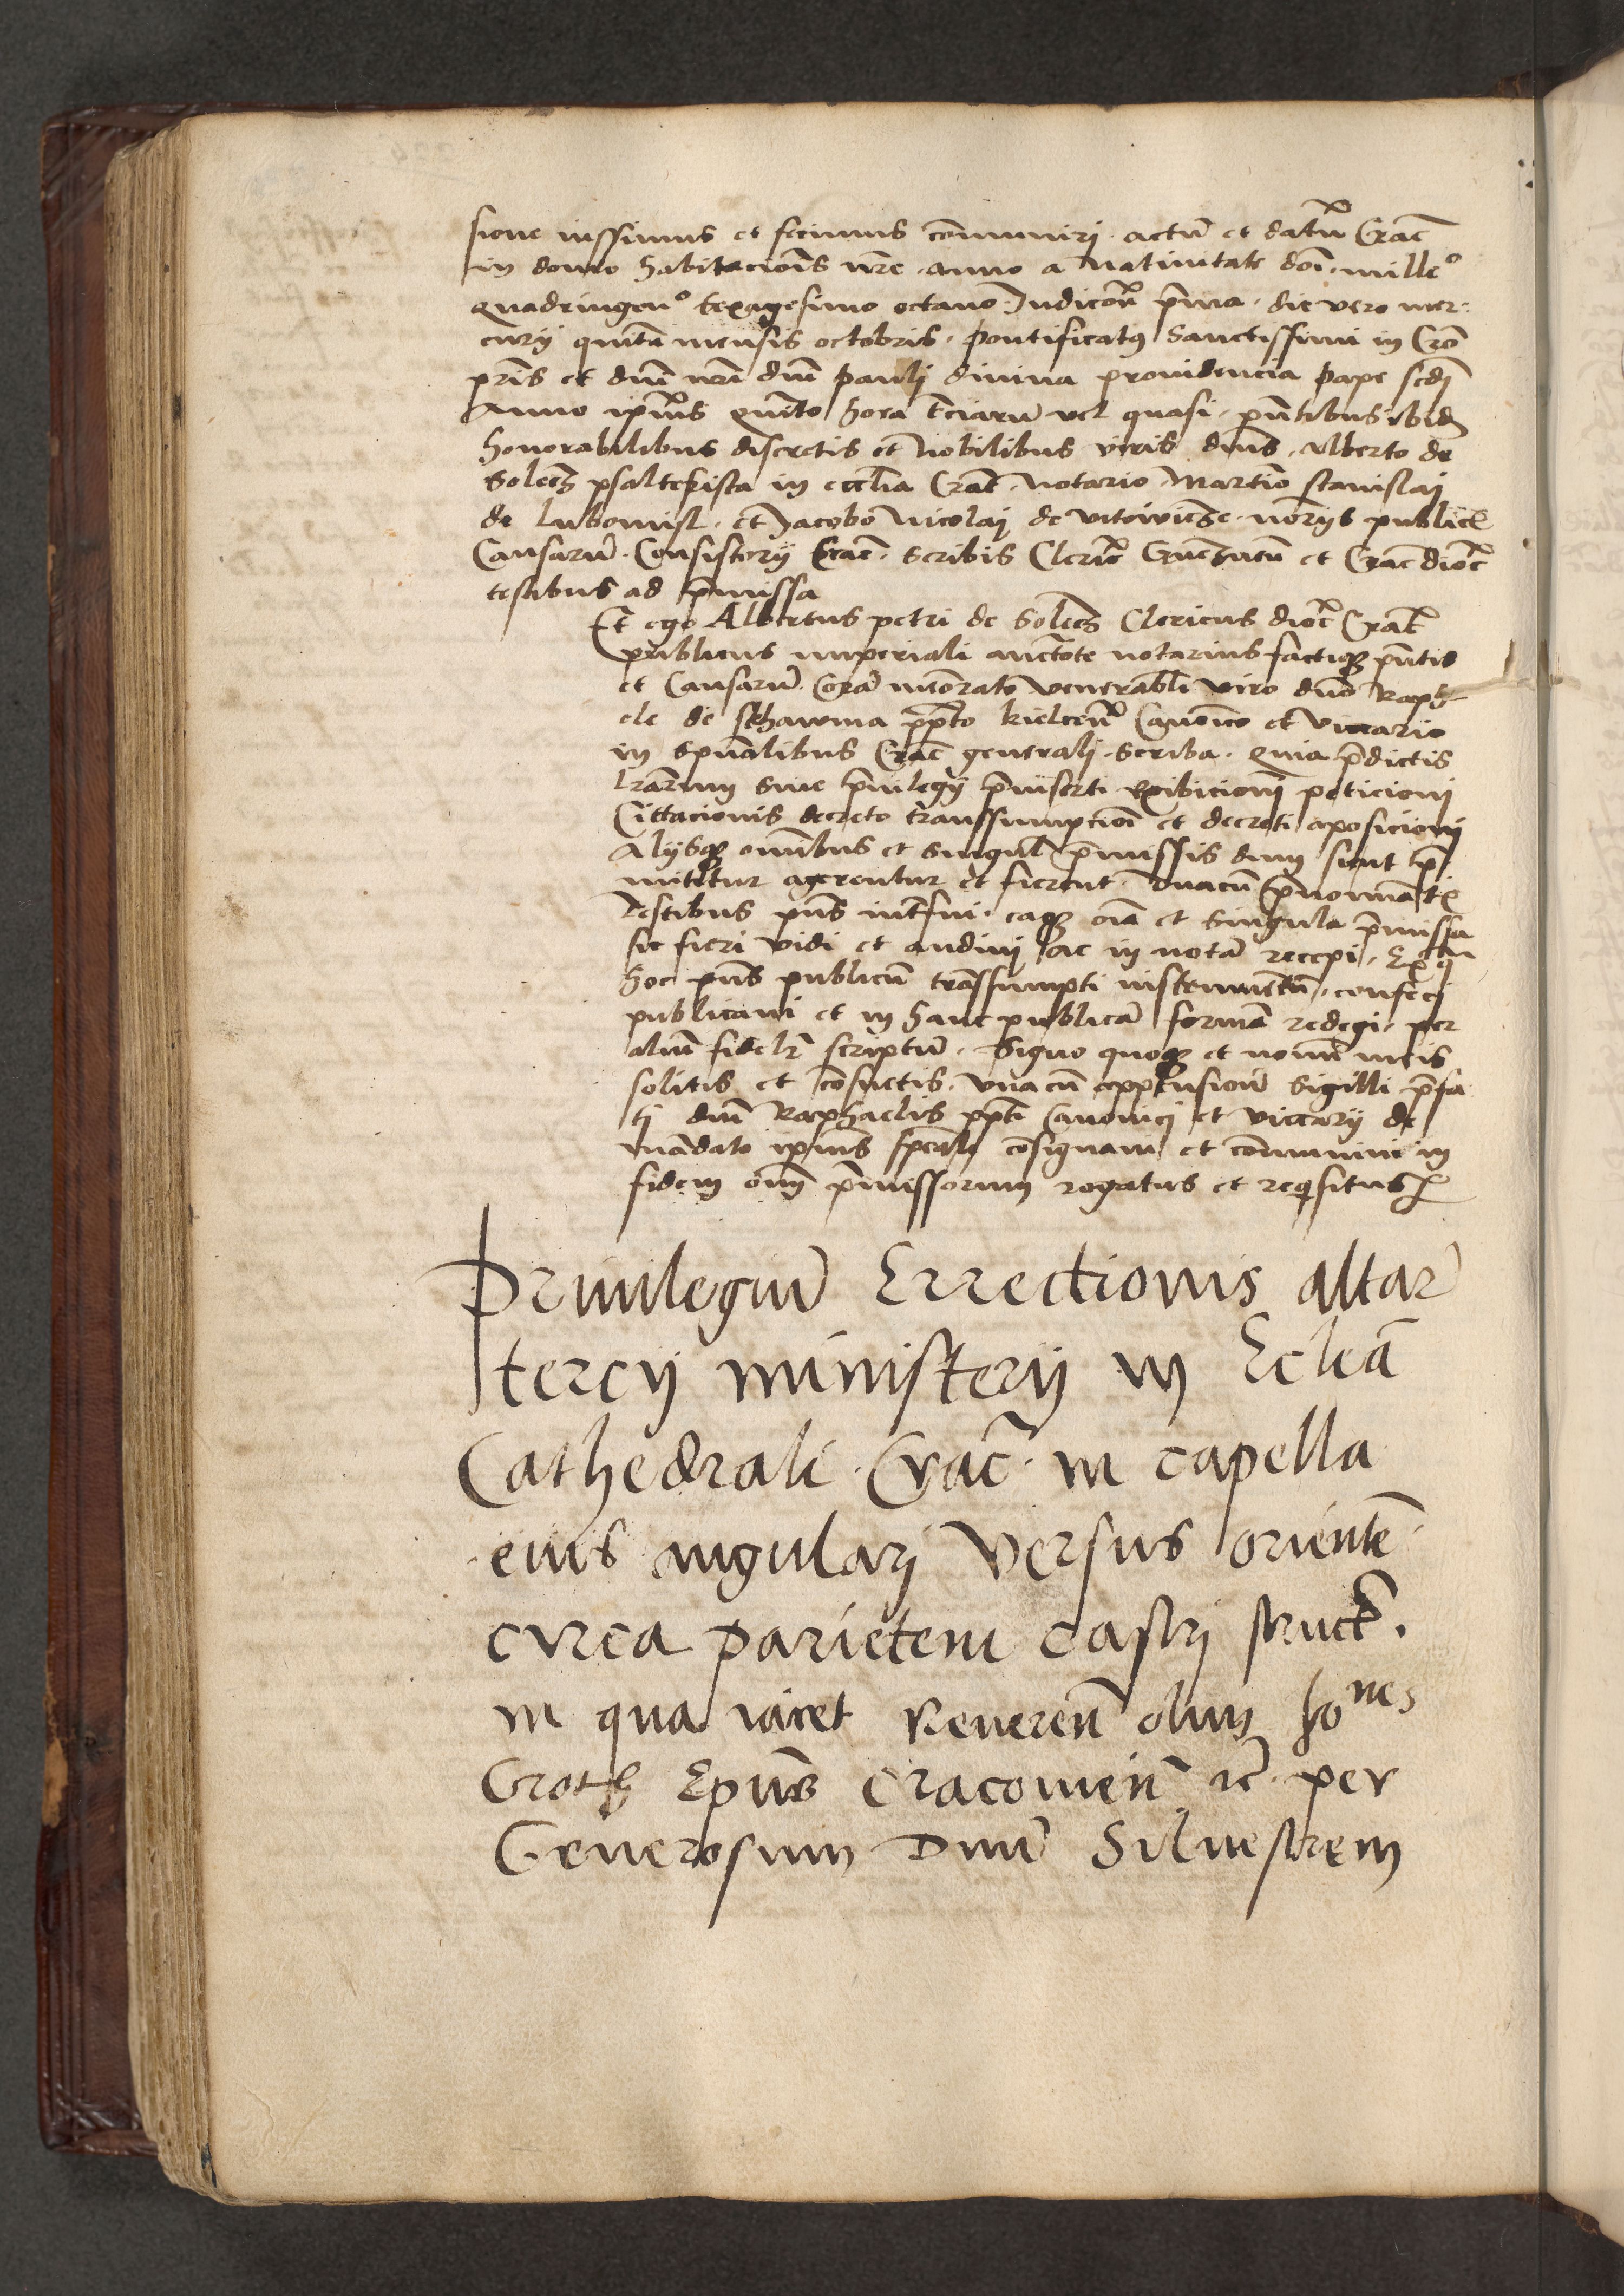 sione iussimus et fecimus co͠muniri · actu͠ et datu͠ Crac͠
in domo habitacio͠is nr͠e · anno a Natiuitate do͠i · mille͠o
quadringen͠o sexagesimo octauo · Indico͠n p͠rima · die vero mer-
curij quinta mensis octobris · pontificatus Sanctissimi in Cro͠
pr͠is et dn͠i nr͠i dn͠i pauli diuina prouidencia pape scdi͠
Anno ip͠ius quinto hora t͠ciaru͠ vel quasi · pn͠tibus ibid͠
honorabilibus discretis et Nobilibus viris dn͠is · Alberto de
Solecz psalterista in eccl͠ia Crac͠ · Notario · Martino stanislai
de Lubomisl · et Jacobo Nicolaj de vitowicze · nor͠ijs public͠
Causaru͠ · Consistorij Crac͠ · scribis Cleric͠ et Crac͠ dioc͠
testibus ad p͠missa
Et ego Albertus petri de Solecz Clericus dioc͠ Crac͠
publicus imperiali auct͠ote notarius factiq; pn͠tis
et Causaru͠ · Cora͠ me͠orato venerabili viro dn͠o Raph-
ele de Skhawina pp͠to kielcen͠ Canonico et vicario
in sp͠ualibus Crac͠ generali · scriba · quia p͠dictis
lr͠arum siue p͠uilegij p͠inserti exibicioni peticioni
Cittacionis decreto transsumpcio͠i et decreti aposicioni
Alijsq; om͠ibus et singul͠ p͠missis dum sicut p͠-
mittitur agerentur et fierent · vnacu͠ p͠nominat͠
Testibus pn͠s int͠fui · eaq; oi͠a et singula p͠missa
sic fieri vidi et audiui ac in nota͠ recepi · Ex q
hoc pn͠s publicu͠ tra͠ssumpti instrumentu͠ · confeci
publicaui et in hanc publica͠ forma͠ redegi · per
aliu͠ fidel͠r scriptu͠ · Signo quoq; et nomi͠e meis
solitis et co͠suetis · vna cu͠ appensione͠ Sigilli p͠fa-
ti dn͠i Raphaelis pp͠ti Canonici et viccarij de
ma͠dato ip͠ius sp͠eciali co͠signaui et co͠muniui in
fidem om͠i p͠missorum rogatus et req͠situs
Priuilegiu͠ Errectionis altar͠
tercij ministerij in Eclea͠
Cathedrali · Crac͠ · in capella
eius angularj Versus oriente͠ ·
circa parietem castrj struct͠ ·
in qua iacet Reueren͠ olim Johanes
Groth Epu͠s Cracouien͠ zc͠ · per
Generosum Dnu͠ Siluestrem